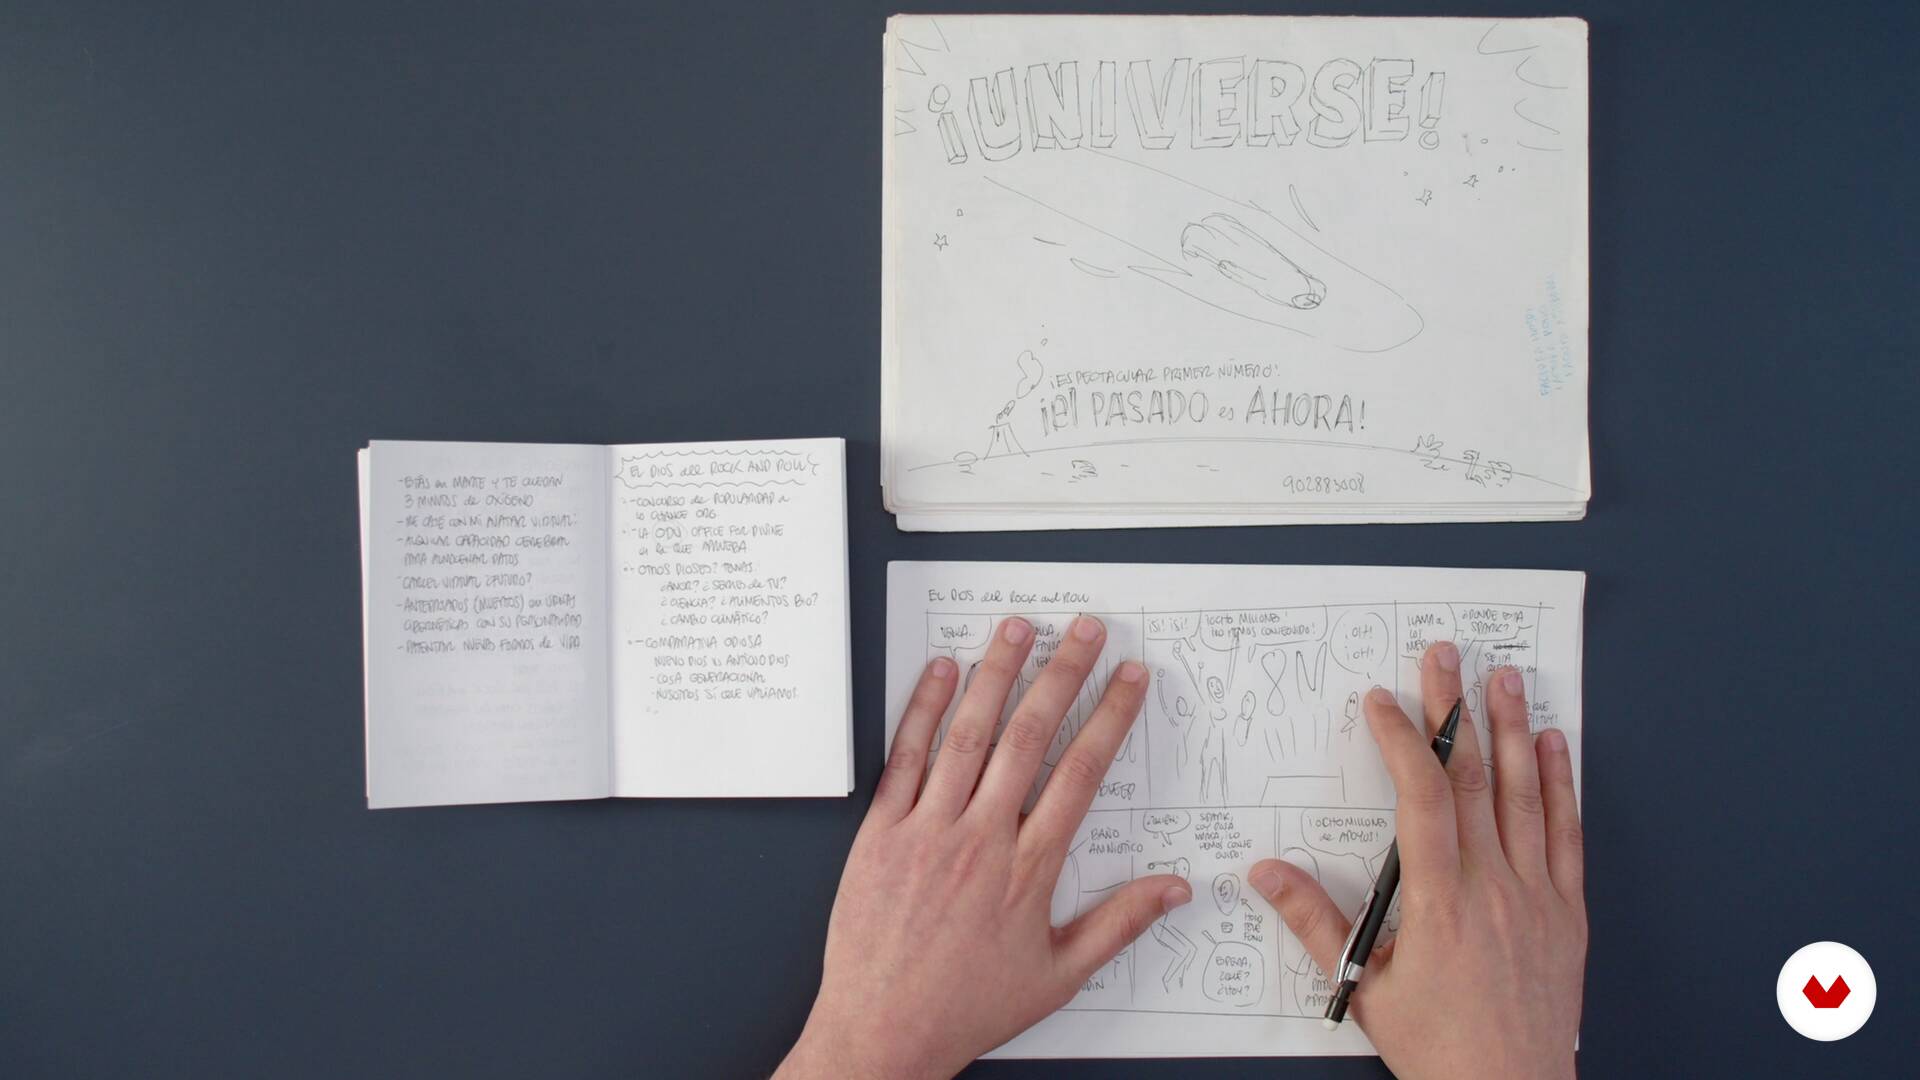 ¡UNIVERSE!
¡ESPECTACULAR PRIMER NÚMERO!
¡el PASADO es AHORA!
902883008
-ESTÁS en MARTE Y TE QUEDAN
3 MINUTOS de OXÍGENO
-ME CASÉ CON MI AVATAR VIRTUAL
-ALQUILAR CAPACIDAD CEREBRAL
PARA ALMACENAR DATOS
-CÁRCEL VIRTUAL ¿FUTURO?
-ANTEPASADOS (MUERTOS) en URNAS
CIBERNÉTICAS CON SU PERSONALIDAD
-PATENTAR NUEVAS FORMAS de VIDA
EL DIOS del ROCK AND ROLL
-CONCURSO de POPULARIDAD a
lo CHANGE.ORG
-LA ODN OFFICE FOR DIVINE
en la QUE APRUEBA
-OTROS DIOSES? TEMAS
¿AMOR? ¿SERIES de TV?
¿CIENCIA? ¿ALIMENTOS BIO?
¿CAMBIO CLIMÁTICO?
-COMPARATIVA ODIOSA
NUEVO DIOS vs ANTIGUO DIOS
-COSA GENERACIONAL
-NOSOTROS SÍ QUE VALÍAMOS
EL DIOS del ROCK and ROLL
VENGA...
¡SÍ! ¡SÍ!
¡OCHO MILLONES!
¡LO HEMOS CONSEGUIDO!
8M
¡OH!
¡OH!
LLAMA a
LOS
¿DÓNDE ESTÁ
SPARK?
SE HA
QUEDADO en
BAÑO
AMNIÓTICO
SPARK,
SOY ROSA
MARÍA, ¡LO
HEMOS CONSE
GUIDO!
HOLO
TELÉ
FONO
ESPERA,
¿QUÉ?
¿HOY?
¡OCHO MILLONES
de APOYOS!